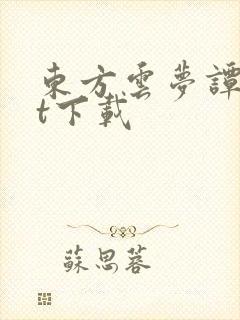 東方雲夢譚
t下載
蘇思蓉